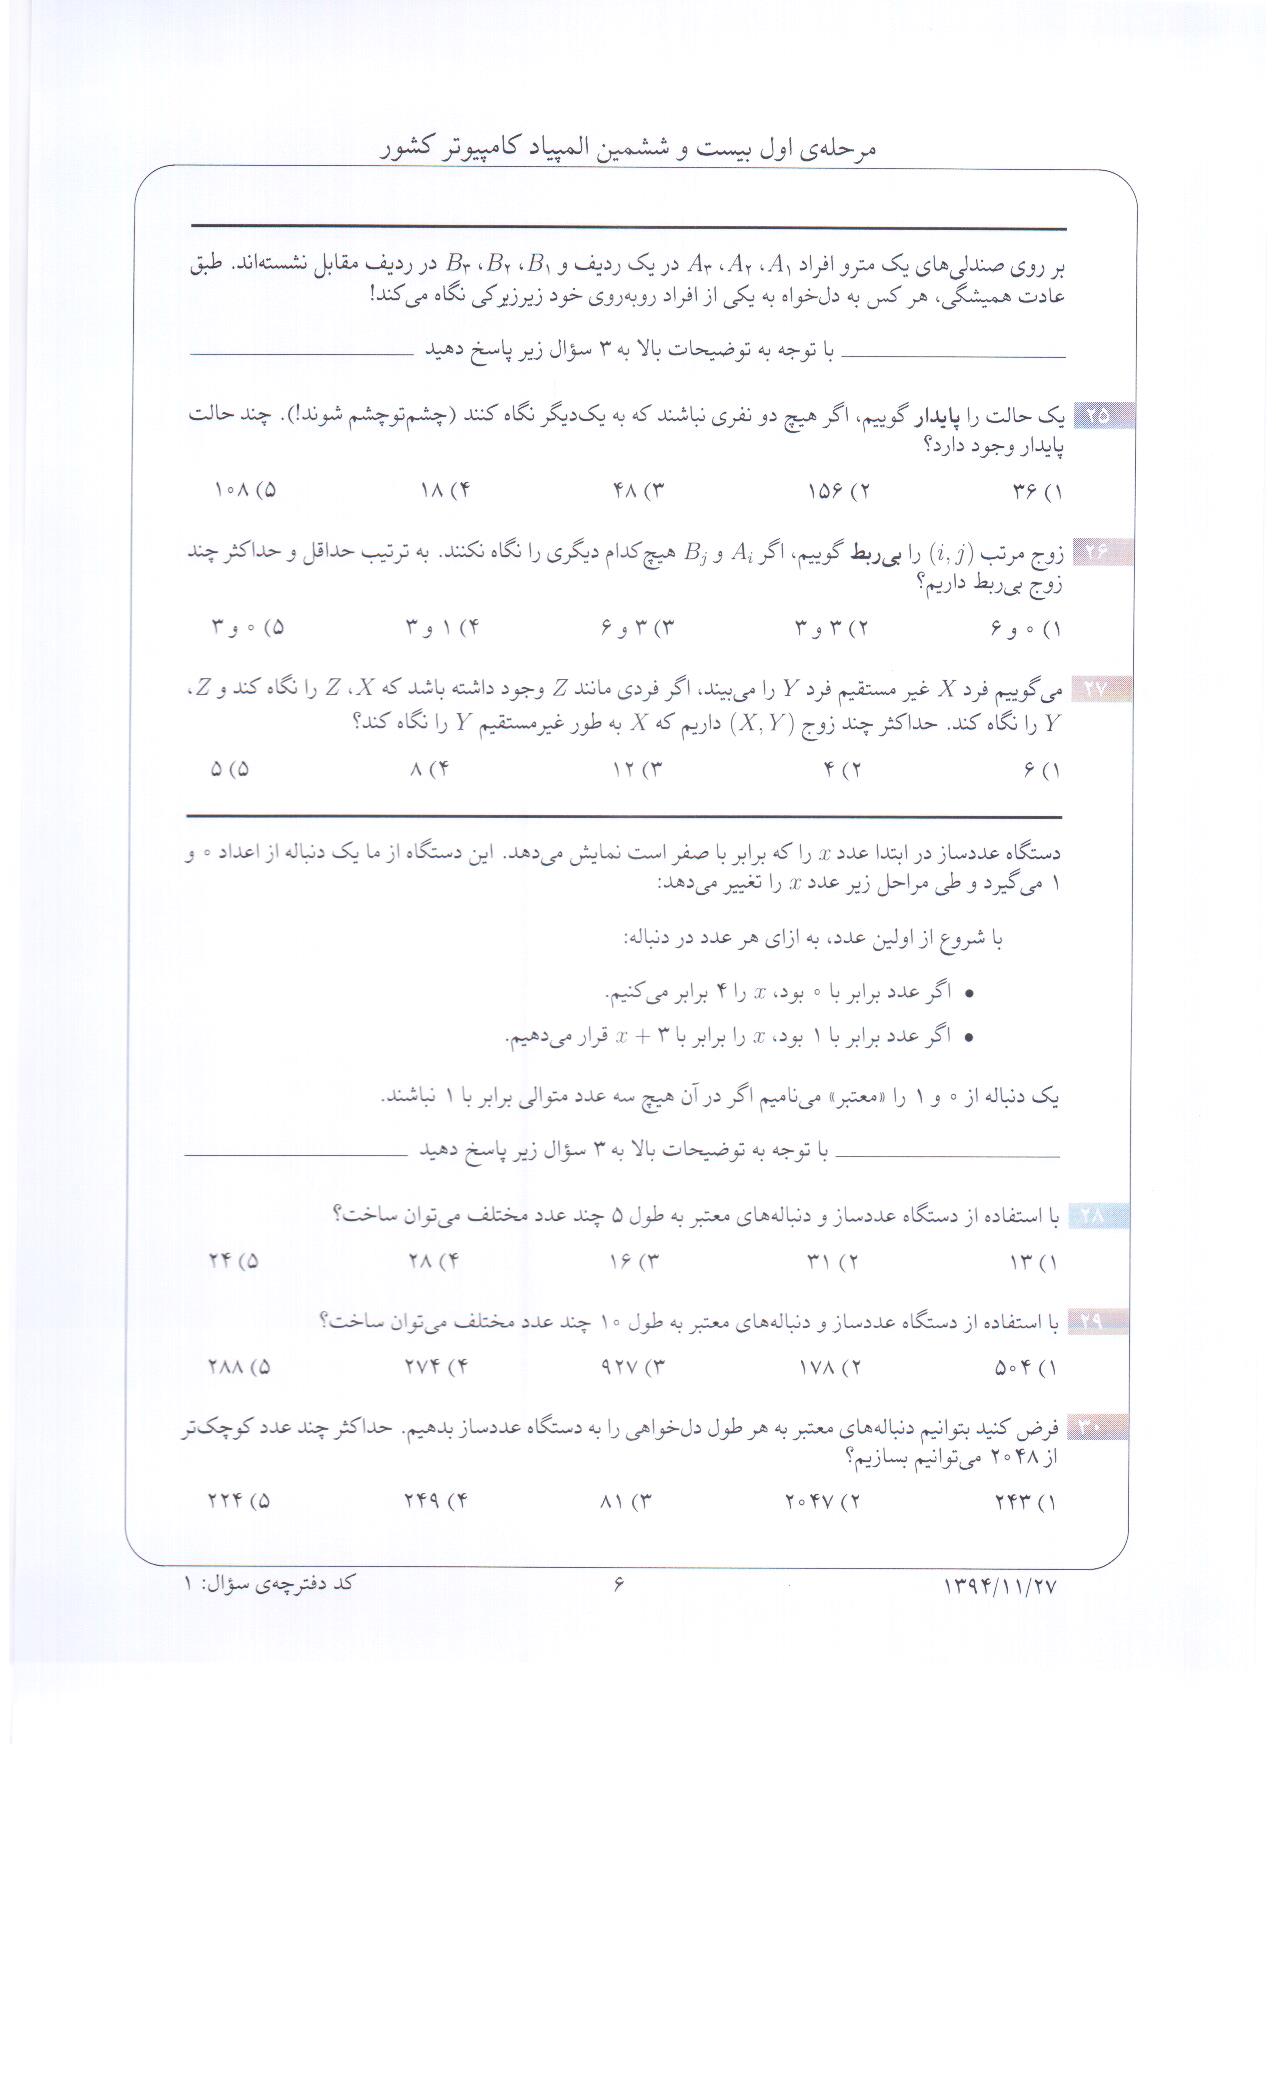 مرحله‌ی اول بیست و ششمین المپیاد کامپیوتر کشور
بر روی صندلی‌های یک مترو افراد A۱، A۲، A۳ در یک ردیف و B۱، B۲، B۳ در ردیف مقابل نشسته‌اند. طبق
عادت همیشگی، هر کس به دل‌خواه به یکی از افراد روبه‌روی خود زیرزیرکی نگاه می‌کند!
با توجه به توضیحات بالا به ۳ سؤال زیر پاسخ دهید
۲۵ یک حالت را پایدار گوییم، اگر هیچ دو نفری نباشند که به یک‌دیگر نگاه کنند (چشم‌توچشم شوند!). چند حالت
پایدار وجود دارد؟
۱) ۳۶ ۲) ۱۵۶ ۳) ۴۸ ۴) ۱۸ ۵) ۱۰۸
۲۶ زوج مرتب (i, j) را بی‌ربط گوییم، اگر Ai و Bj هیچ‌کدام دیگری را نگاه نکنند. به ترتیب حداقل و حداکثر چند
زوج بی‌ربط داریم؟
۱) ۰ و ۶ ۲) ۳ و ۳ ۳) ۳ و ۶ ۴) ۱ و ۳ ۵) ۰ و ۳
۲۷ می‌گوییم فرد X غیر مستقیم فرد Y را می‌بیند، اگر فردی مانند Z وجود داشته باشد که X، Z را نگاه کند و Z،
Y را نگاه کند. حداکثر چند زوج (X, Y) داریم که X به طور غیرمستقیم Y را نگاه کند؟
۱) ۶ ۲) ۴ ۳) ۱۲ ۴) ۸ ۵) ۵
دستگاه عددساز در ابتدا عدد x را که برابر با صفر است نمایش می‌دهد. این دستگاه از ما یک دنباله از اعداد ۰ و
۱ می‌گیرد و طی مراحل زیر عدد x را تغییر می‌دهد:
با شروع از اولین عدد، به ازای هر عدد در دنباله:
• اگر عدد برابر با ۰ بود، x را ۴ برابر می‌کنیم.
• اگر عدد برابر با ۱ بود، x را برابر با x + ۳ قرار می‌دهیم.
یک دنباله از ۰ و ۱ را «معتبر» می‌نامیم اگر در آن هیچ سه عدد متوالی برابر با ۱ نباشند.
با توجه به توضیحات بالا به ۳ سؤال زیر پاسخ دهید
۲۸ با استفاده از دستگاه عددساز و دنباله‌های معتبر به طول ۵ چند عدد مختلف می‌توان ساخت؟
۱) ۱۳ ۲) ۳۱ ۳) ۱۶ ۴) ۲۸ ۵) ۲۴
۲۹ با استفاده از دستگاه عددساز و دنباله‌های معتبر به طول ۱۰ چند عدد مختلف می‌توان ساخت؟
۱) ۵۰۴ ۲) ۱۷۸ ۳) ۹۲۷ ۴) ۲۷۴ ۵) ۲۸۸
۳۰ فرض کنید بتوانیم دنباله‌های معتبر به هر طول دل‌خواهی را به دستگاه عددساز بدهیم. حداکثر چند عدد کوچک‌تر
از ۲۰۴۸ می‌توانیم بسازیم؟
۱) ۲۴۳ ۲) ۲۰۴۷ ۳) ۸۱ ۴) ۲۴۹ ۵) ۲۲۴
۱۳۹۴/۱۱/۲۷ ۶ کد دفترچه‌ی سؤال: ۱